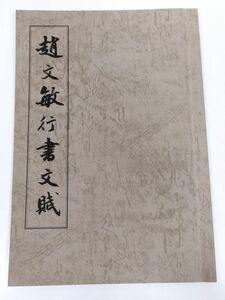 趙文敏行書文賦